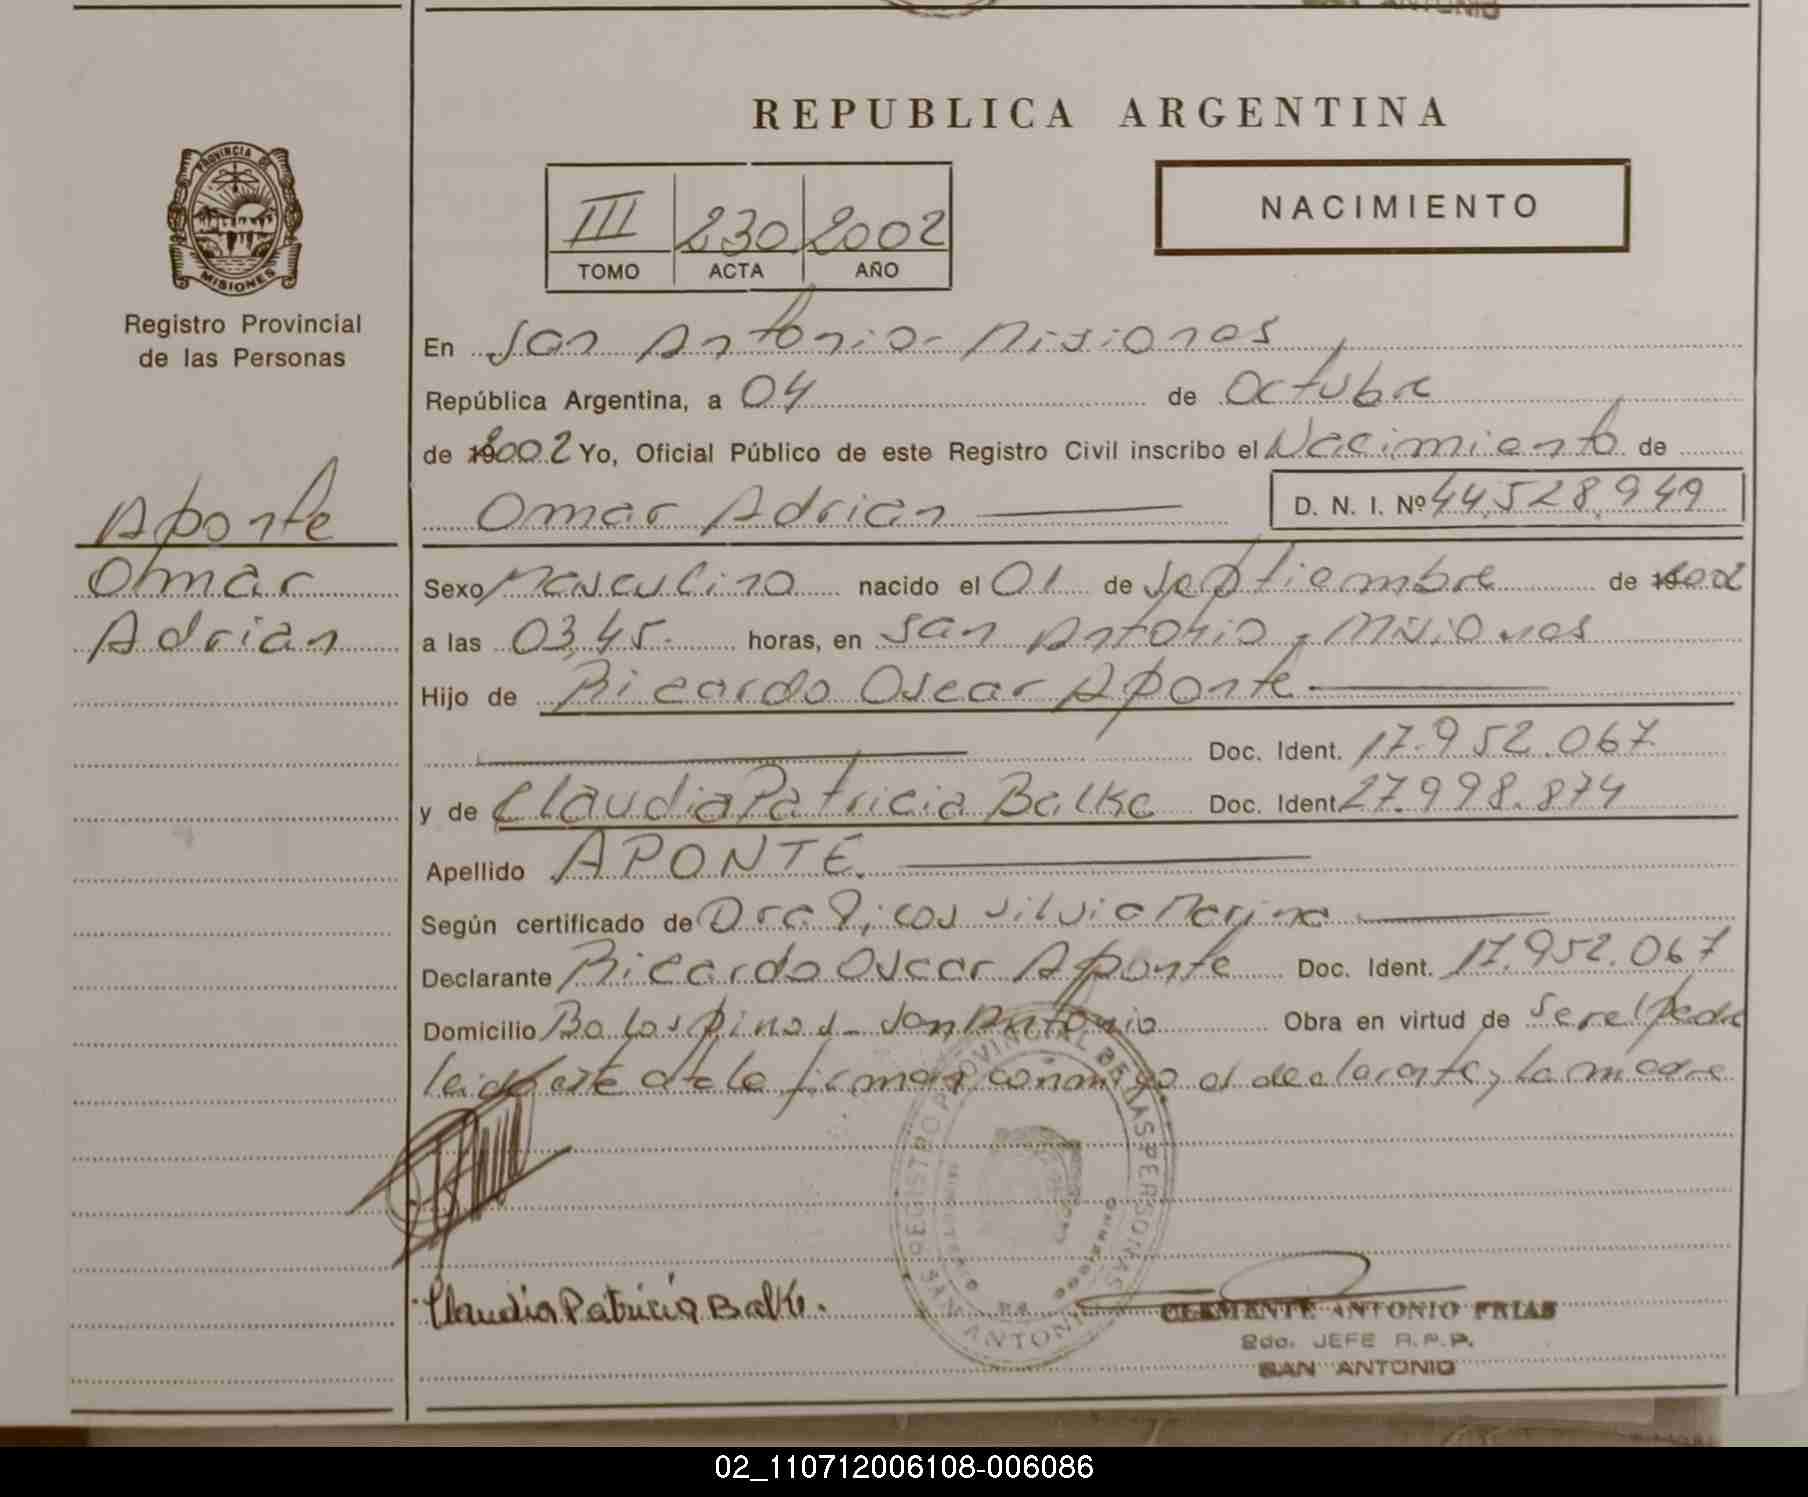 SAN ANTONIO
REPUBLICA ARGENTINA
PROVINCIA DE
MISIONES
Registro Provincial
de las Personas
III 230 2002
TOMO ACTA AÑO
NACIMIENTO
En San Antonio - Misiones
República Argentina, a 04 de Octubre
de 2002 Yo, Oficial Público de este Registro Civil inscribo el Nacimiento de
Omar Adrian D. N. I. Nº 44.528.949
Aponte
Omar
Adrian
Sexo Masculino nacido el 01 de Septiembre de 2002
a las 03,45 horas, en San Antonio, Misiones
Hijo de Ricardo Oscar Aponte
Doc. Ident. 17.952.067
y de Claudia Patricia Balke Doc. Ident. 27.998.874
Apellido APONTE
Según certificado de Dra Picos Silvia Marina
Declarante Ricardo Oscar Aponte Doc. Ident. 17.952.067
Domicilio Bo Los pinos - San Antonio Obra en virtud de ser el padre
leido este firman conmigo el declarante, la madre
REGISTRO PROVINCIAL DE LAS PERSONAS
SAN ANTONIO
Claudia Patricia Balke.
CLEMENTE ANTONIO FRIAS
2do. JEFE R.P.P.
SAN ANTONIO
02_110712006108-006086